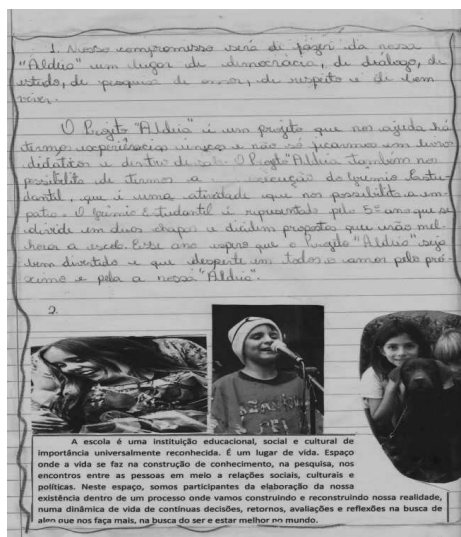 1. Nosso compromisso será di fazer da nossa
"Aldeia" um lugar de democrácia, de diálogo, de
estudo, de pesquisa de amor, de respeito e de bem
viver.
O Projeto "Aldeia" é um projeto que nos ajuda há
termos experiência única e não só ficarmos em livro
didático e dentro de sala. O Projeto "Aldeia também nos
possibilita de termos a execução do Grêmio Estu-
dantil, que é uma atividade que nos possibilita a em-
patia. O Grêmio Estudantil é representado pelo 5º ano que se
divide em duas chapas e dicidem propostas que irão mel-
hora a escola. Esse ano espero que o Projeto "Aldeia" seja
bem divertido e que desperte em todos o amor pelo pró-
ximo e pela a nossa "Aldeia".
2.
A escola é uma instituição educacional, social e cultural de
importância universalmente reconhecida. É um lugar de vida. Espaço
onde a vida se faz na construção de conhecimento, na pesquisa, nos
encontros entre as pessoas em meio a relações sociais, culturais e
políticas. Neste espaço, somos participantes da elaboração da nossa
existência dentro de um processo onde vamos construindo e reconstruindo nossa realidade,
numa dinâmica de vida de contínuas decisões, retornos, avaliações e reflexões na busca de
algo que nos faça mais, na busca do ser e estar melhor no mundo.